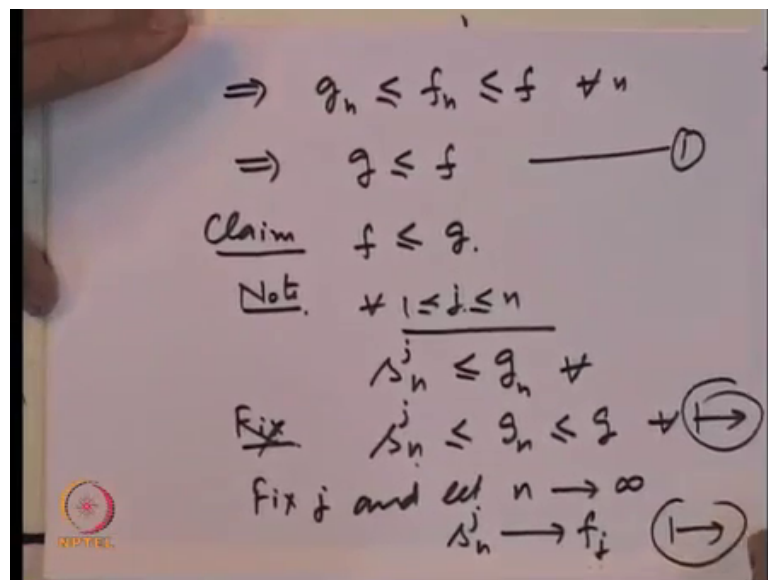 ⇒ gₙ ≤ fₙ ≤ f ∀ n
⇒ g ≤ f ——— ①
Claim f ≤ g.
Note. ∀ 1 ≤ j ≤ n
sₙʲ ≤ gₙ ∀
Fix sₙʲ ≤ gₙ ≤ g ∀ ↦
Fix j and let n → ∞
sₙʲ → fⱼ ↦
NPTEL